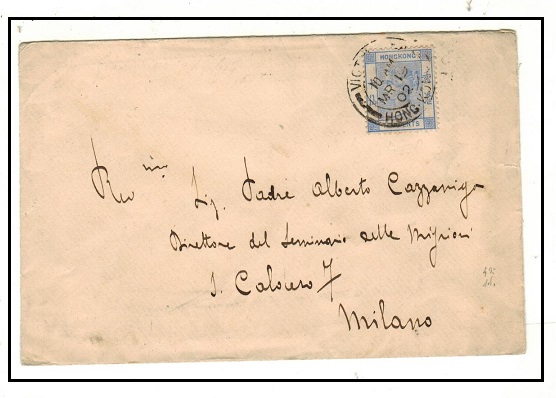 HONGKONG
VICTORIA
10 AM
MR 19
02
HONG KONG
CENTS
Rev mo Sig. Padre Alberto Cazzaniga
Direttore del Seminario delle Missioni
S. Calocero 7
Milano